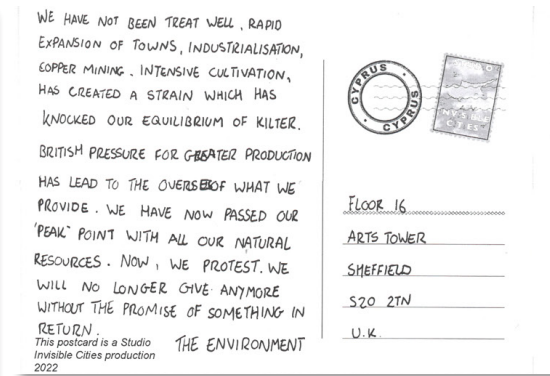 WE HAVE NOT BEEN TREAT WELL. RAPID
EXPANSION OF TOWNS, INDUSTRIALISATION,
COPPER MINING. INTENSIVE CULTIVATION,
HAS CREATED A STRAIN WHICH HAS
KNOCKED OUR EQUILIBRIUM OF KILTER.
BRITISH PRESSURE FOR GREATER PRODUCTION
HAS LEAD TO THE OF WHAT WE
PROVIDE. WE HAVE NOW PASSED OUR
'PEAK' POINT WITH ALL OUR NATURAL
RESOURCES. NOW, WE PROTEST. WE
WILL NO LONGER GIVE ANYMORE
WITHOUT THE PROMISE OF SOMETHING IN
RETURN.
THE ENVIRONMENT
This postcard is a Studio
Invisible Cities production
2022
CYPRUS
CYPRUS
INVISIBLE
CITIES
FLOOR 16
ARTS TOWER
SHEFFIELD
S20 2TN
U.K.